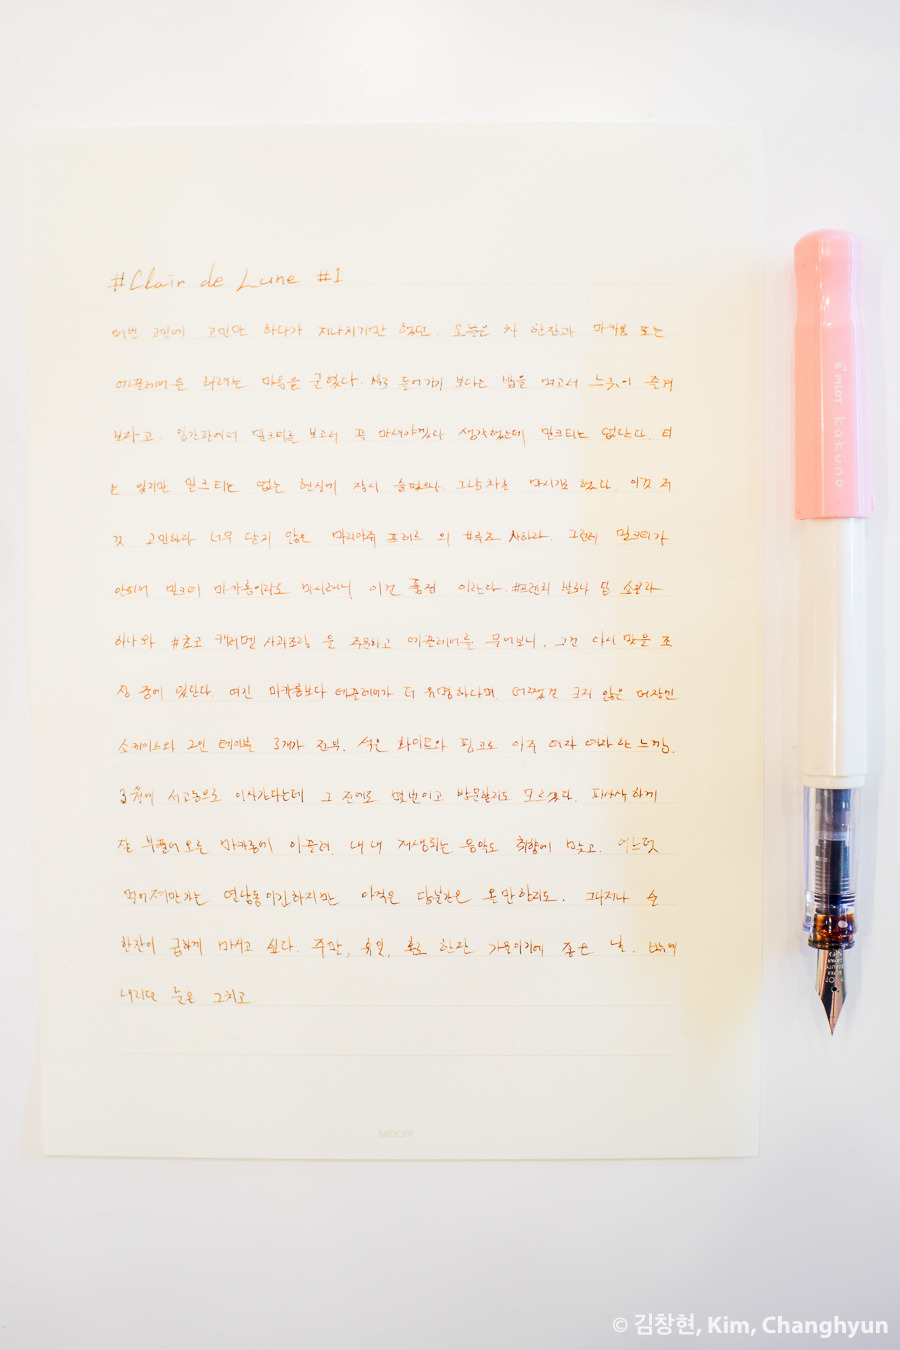 #Clair de Lune #1
매번 고민에 고민만 하다가 지나치기만 했던. 오늘은 차 한잔과 마카롱 또는
에끌레어를 마음을 굳혔다. 바로 들어가기 보다는 밥을 먹고서 느긋이 즐겨
보자고. 입간판에서 밀크티를 보고서 꼭 마셔야겠다 생각했는데 밀크티는 없단다. 티
는 있지만 밀크티는 없는 현실에 잠시 슬펐으나 그냥 차를 마시기로 했다. 이것 저
것 고민하다 너무 달지 않은 마리아쥬 프레르 의 #루즈 사하라. 그런데 밀크티가
안되어 밀크티 마카롱이라도 먹으려니 이건 품절 이란다. #프렌치 바닐라 앤 쇼콜라
하나와 #초코 캐러멜 사과조림 을 주문하고 에끌레어를 물어보니, 그건 다시 맛을 조
정 중에 있단다. 여긴 마카롱보다 에끌레어가 더 유명하다며. 어쨌건 크지 않은 매장인
쇼케이스와 2인 테이블 3개가 전부. 석은 화이트와 핑크로 아주 여자 여자한 느낌.
3월에 서교동으로 이사간다는데 그 전에도 몇번이고 방문할지도 모르겠다. 파사삭하게
잘 부풀어 오른 마카롱에 이끌려. 내내 재생되는 음악도 취향에 맞고. 어느덧
멀어져만가는 연남동이긴하지만 아직은 당분간은 올만할지도. 그나저나 술
한잔이 급하게 마시고 싶다. 주말, 휴일, 홀로 한잔 기울이기에 좋은 날. 밖에
내리던 눈은 그치고
MIDORI
PILOT kakuno
© 김창현, Kim, Changhyun